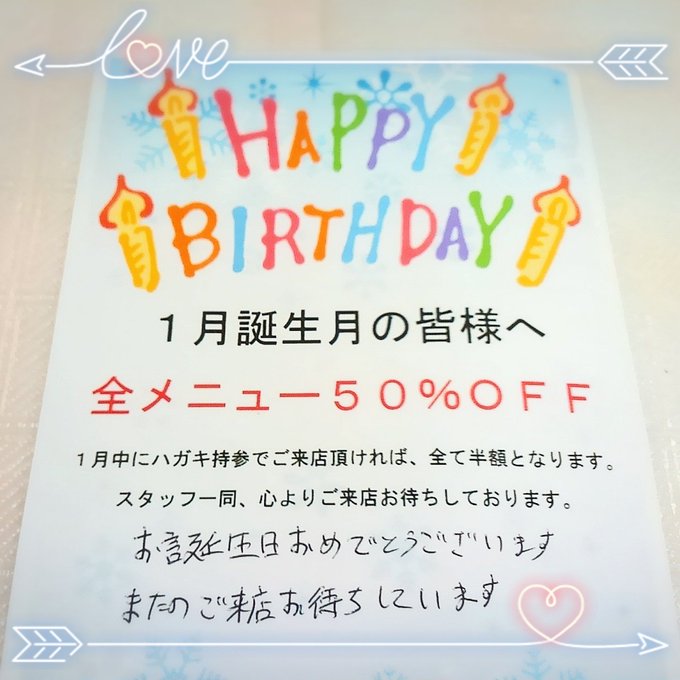 Love
HAPPY
BIRTHDAY
１月誕生月の皆様へ
全メニュー５０％ＯＦＦ
１月中にハガキ持参でご来店頂ければ、全て半額となります。
スタッフ一同、心よりご来店お待ちしております。
お誕生日おめでとうございます
またのご来店お待ちしています